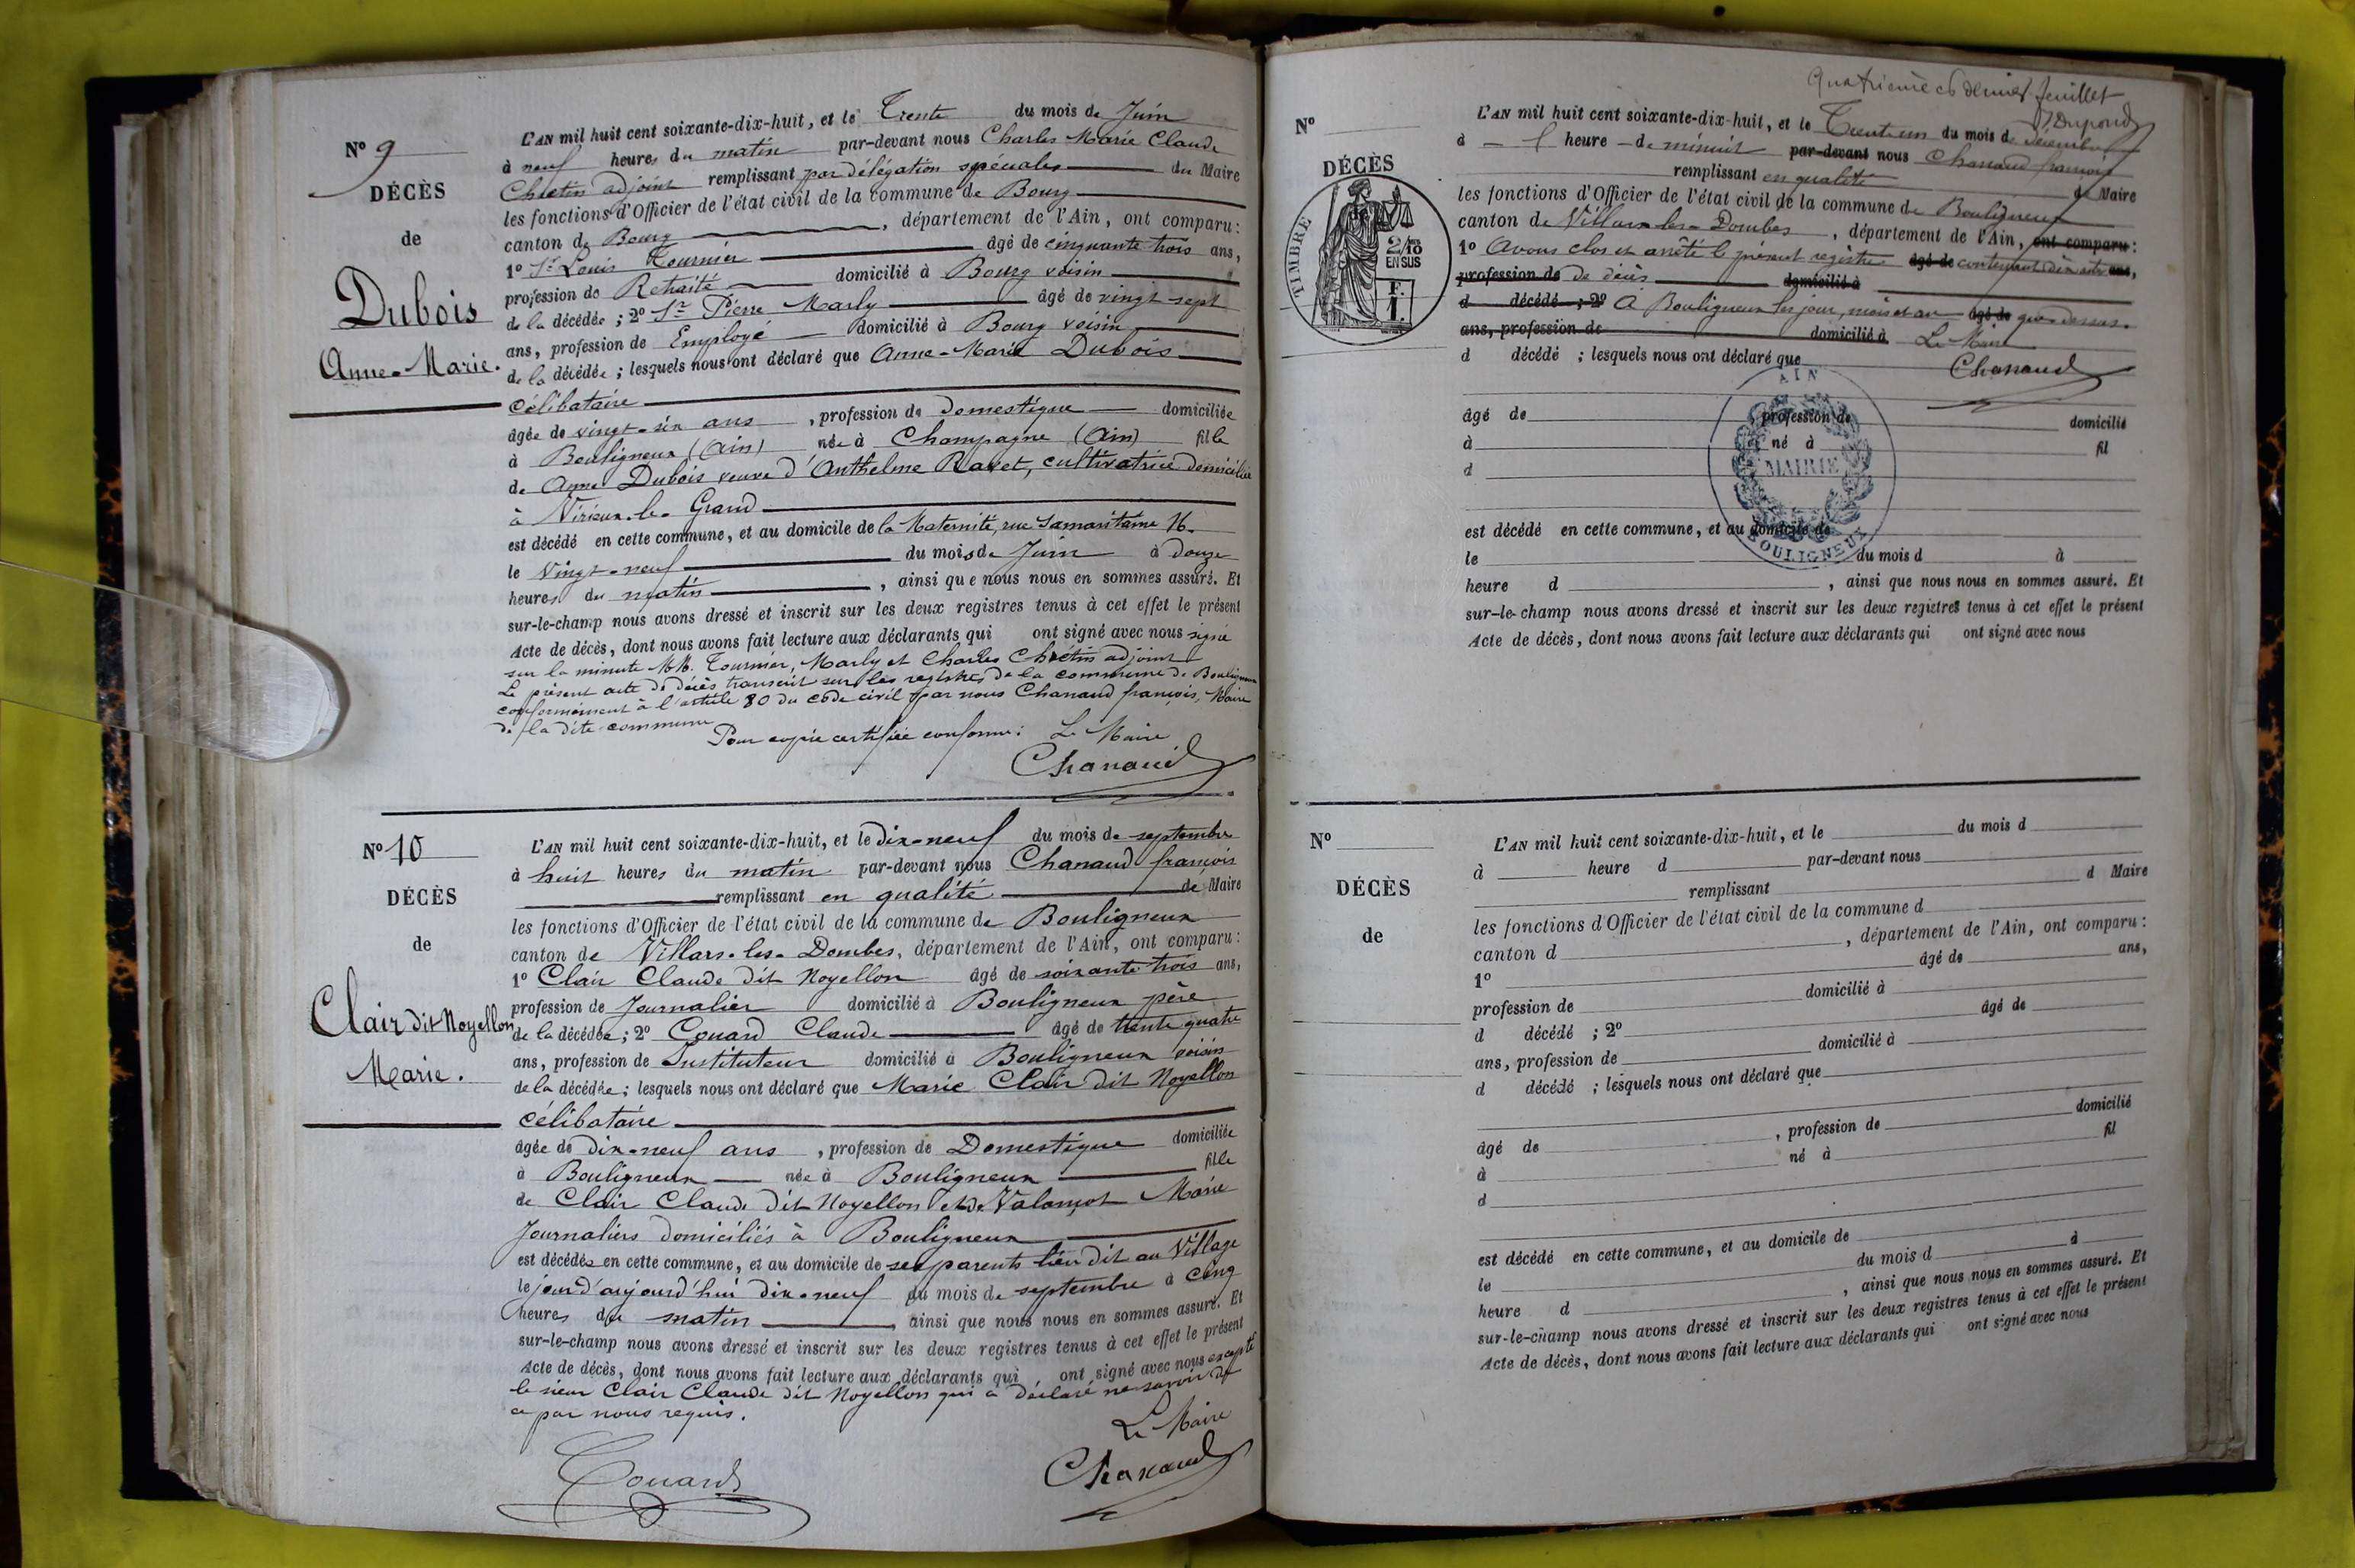 N° 9
DÉCÈS
de
Dubois
Anne-Marie.
L'AN mil huit cent soixante-dix-huit, et le Trente du mois de Juin
à neuf heures du matin par-devant nous Charles Marie Claude
Chrétin adjoint remplissant par délégation spéciale du Maire
les fonctions d'Officier de l'état civil de la commune de Bourg
canton de Bourg, département de l'Ain, ont comparu:
1° Sr Louis Tournier âgé de cinquante trois ans,
profession de Retraité domicilié à Bourg voisin
de la décédée; 2° Sr Pierre Marly âgé de vingt sept
ans, profession de Employé domicilié à Bourg voisin
de la décédée; lesquels nous ont déclaré que Anne-Marie Dubois
célibataire
âgée de vingt-six ans, profession de domestique domiciliée
à Bouligneux (Ain) née à Champagne (Ain) fille
de Anne Dubois veuve d'Anthelme Ravet, cultivatrice domiciliée
à Virieux-le-Grand
est décédé en cette commune, et au domicile de la Maternité, rue Samaritaine 16
le vingt-neuf du mois de Juin à douze
heures du matin, ainsi que nous nous en sommes assuré. Et
sur-le-champ nous avons dressé et inscrit sur les deux registres tenus à cet effet le présent
Acte de décès, dont nous avons fait lecture aux déclarants qui ont signé avec nous signé
sur la minute MM. Tournier, Marly et Charles Chrétin adjoint
Le présent acte de décès transcrit sur les registres de la commune de Bouligneux
conformément à l'article 80 du code civil par nous Chanaud françois, Maire
de la dite commune
Pour copie certifiée conforme: Le Maire
Chanaud
N° 10
DÉCÈS
de
Clair dit Noyellon
Marie.
L'AN mil huit cent soixante-dix-huit, et le dix-neuf du mois de septembre
à huit heures du matin par-devant nous Chanaud françois
remplissant en qualité de Maire
les fonctions d'Officier de l'état civil de la commune de Bouligneux
canton de Villars-les-Dombes, département de l'Ain, ont comparu:
1° Clair Claude dit Noyellon âgé de soixante trois ans,
profession de Journalier domicilié à Bouligneux père
de la décédée; 2° Couard Claude âgé de trente quatre
ans, profession de Instituteur domicilié à Bouligneux voisin
de la décédée; lesquels nous ont déclaré que Marie Clair dit Noyellon
célibataire
âgée de dix-neuf ans, profession de Domestique domiciliée
à Bouligneux née à Bouligneux fille
de Clair Claude dit Noyellon et de Valançot Marie
Journaliers domiciliés à Bouligneux
est décédée en cette commune, et au domicile de ses parents lieu dit au Village
le jour d'aujourd'hui dix-neuf du mois de septembre à cinq
heures du matin, ainsi que nous nous en sommes assuré. Et
sur-le-champ nous avons dressé et inscrit sur les deux registres tenus à cet effet le présent
Acte de décès, dont nous avons fait lecture aux déclarants qui ont signé avec nous excepté
le sieur Clair Claude dit Noyellon qui a déclaré ne savoir de
ce par nous requis.
Le Maire
Couard
Chanaud
quatrième et dernier feuillet
Dupond
N°
DÉCÈS
TIMBRE
2/10
EN SUS
F.
1.
L'AN mil huit cent soixante-dix-huit, et le Trente un du mois de décembre
à heure de minuit par-devant nous Chanaud françois
remplissant en qualité de Maire
les fonctions d'Officier de l'état civil de la commune de Bouligneux
canton de Villars-les-Dombes, département de l'Ain, ont comparu:
1° Avons clos et arrêté le présent registre âgé de contenant dix actes ans,
profession de de décès domicilié à
d décédé; 2° A Bouligneux les jour, mois et an âgé de que dessus.
ans, profession de domicilié à Le Maire
d décédé; lesquels nous ont déclaré que Chanaud
AIN
MAIRIE
BOULIGNEUX
âgé de profession de domicilié
à né à fil
d
est décédé en cette commune, et au domicile de
le du mois d à
heure d, ainsi que nous nous en sommes assuré. Et
sur-le-champ nous avons dressé et inscrit sur les deux registres tenus à cet effet le présent
Acte de décès, dont nous avons fait lecture aux déclarants qui ont signé avec nous
N°
DÉCÈS
de
L'AN mil huit cent soixante-dix-huit, et le du mois d
à heure d par-devant nous
remplissant d Maire
les fonctions d'Officier de l'état civil de la commune d
canton d, département de l'Ain, ont comparu:
1° âgé de ans,
profession de domicilié à
d décédé; 2° âgé de
ans, profession de domicilié à
d décédé; lesquels nous ont déclaré que
âgé de, profession de domicilié
à né à fil
d
est décédé en cette commune, et au domicile de
le du mois d à
heure d, ainsi que nous nous en sommes assuré. Et
sur-le-champ nous avons dressé et inscrit sur les deux registres tenus à cet effet le présent
Acte de décès, dont nous avons fait lecture aux déclarants qui ont signé avec nous